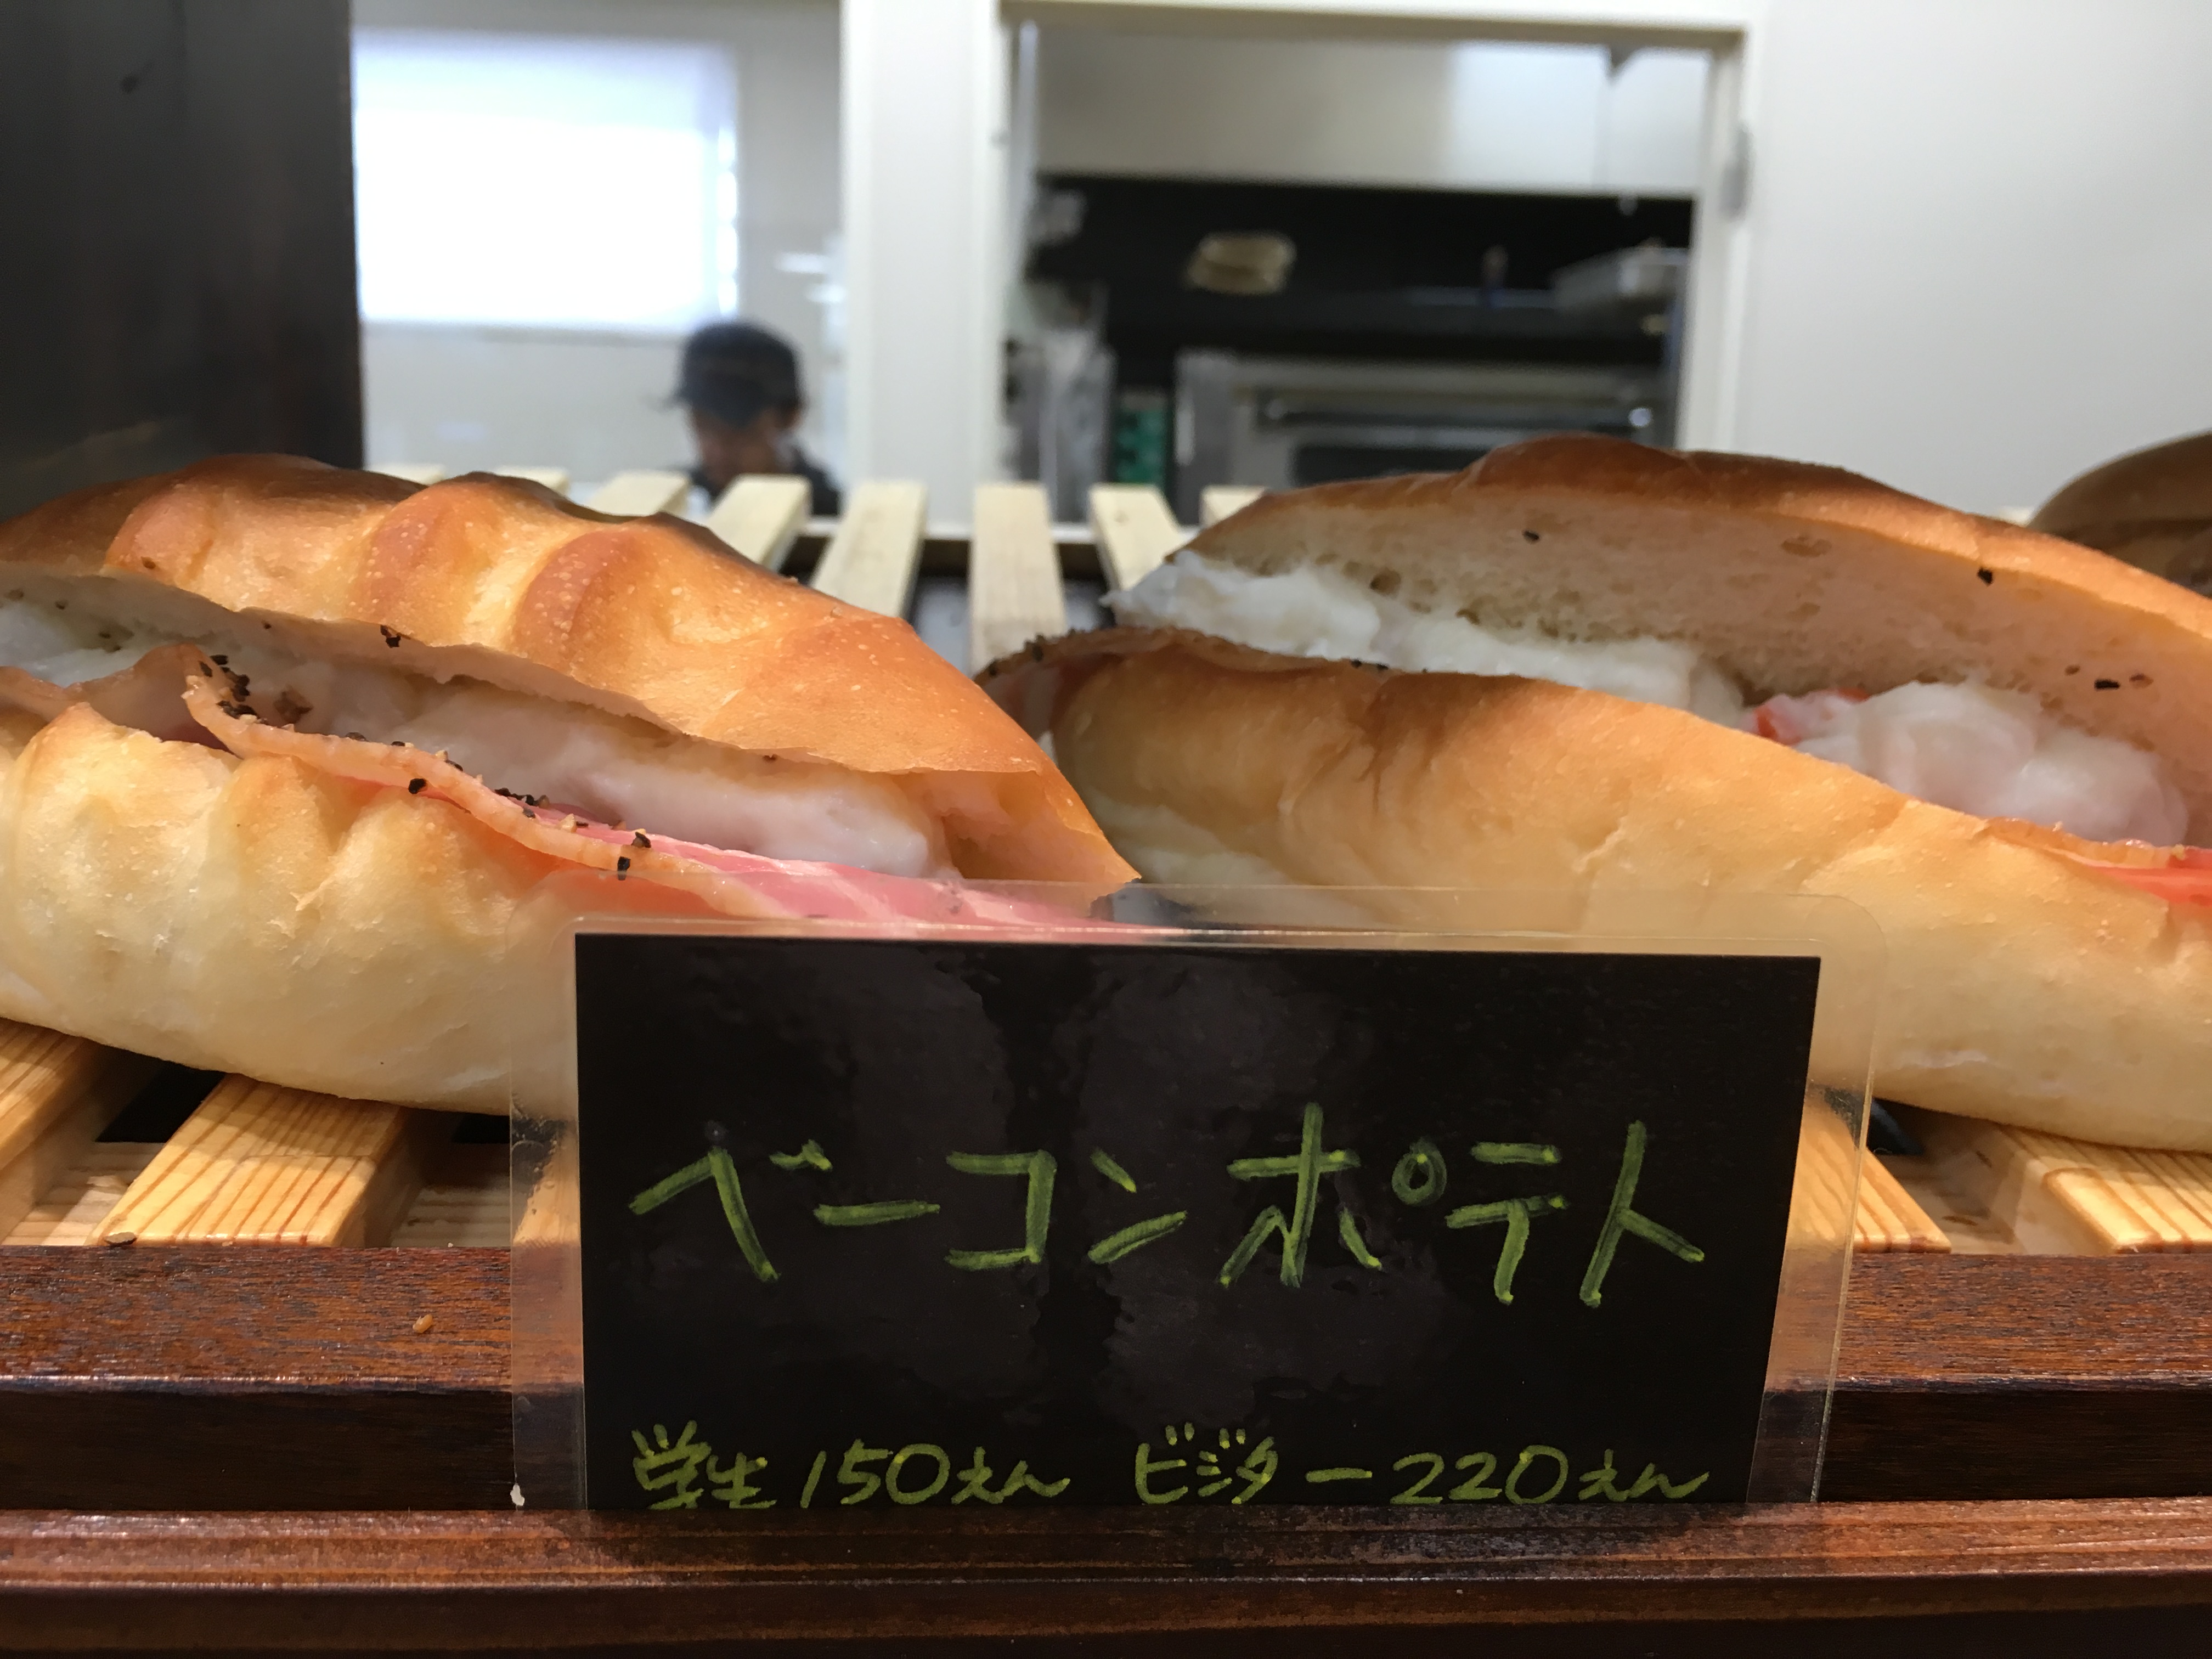 ベーコンポテト
学生150えん ビジター220えん